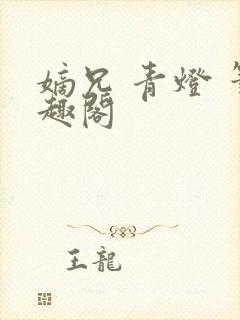 嫡兄 青燈
趣閣
王龍